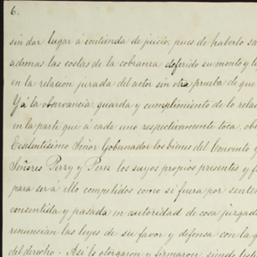 6.
sin dar lugar á contienda de juicio, pues de haberlo sa
ademas las costas de la cobranza deferido su monto y l
en la relacion jurada del actor sin otra prueba de que
Y á la observancia, guarda y cumplimiento de lo rela
en la parte que á cada uno respectivamente toca, ob
Excelentísimo Señor Gobernador los bienes del Convento y
Señores Perry y Peris los suyos propios presentes y f
para ser á ello compelidos como si fuera por senten
consentida y pasada en autoridad de cosa juzgad
renuncian las leyes de su favor y defensa con la g
del derecho. Asi lo otorgaron y firmaron, siendo